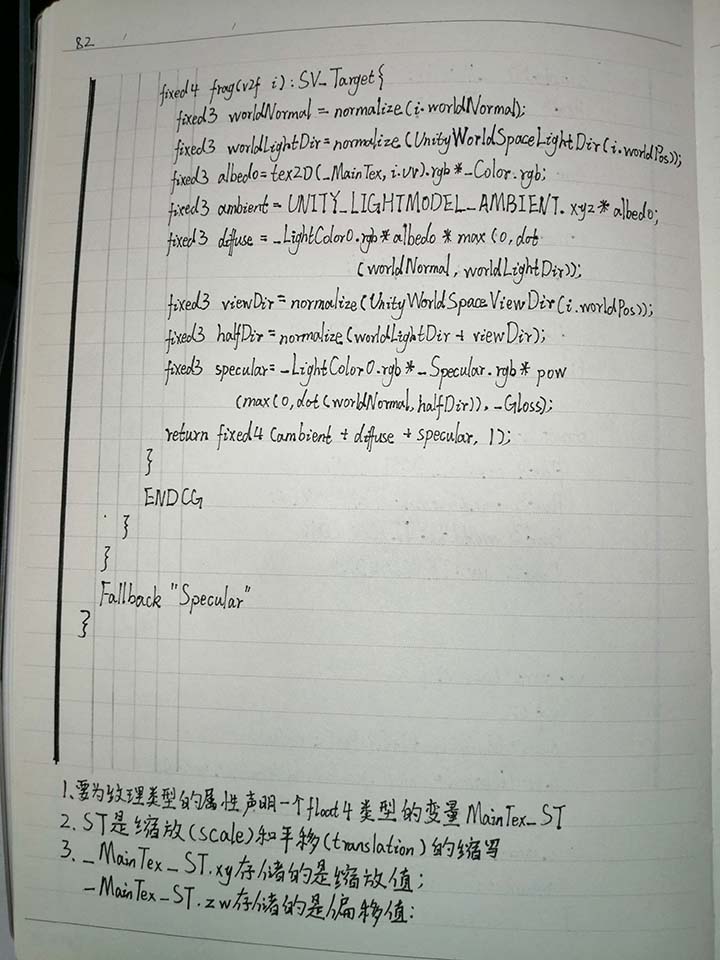 82
fixed4 frag(v2f i):SV_Target{
fixed3 worldNormal = normalize(i.worldNormal);
fixed3 worldLightDir=normalize(UnityWorldSpaceLightDir(i.worldPos));
fixed3 albedo=tex2D(_MainTex,i.uv).rgb*_Color.rgb;
fixed3 ambient=UNITY_LIGHTMODEL_AMBIENT.xyz*albedo;
fixed3 diffuse =_LightColor0.rgb*albedo*max(0,dot
(worldNormal,worldLightDir));
fixed3 viewDir=normalize(UnityWorldSpaceViewDir(i.worldPos));
fixed3 halfDir=normalize(worldLightDir + viewDir);
fixed3 specular=_LightColor0.rgb*_Specular.rgb*pow
(max(0,dot(worldNormal,halfDir)),_Gloss);
return fixed4(ambient + diffuse + specular, 1);
}
ENDCG
}
}
Fallback "Specular"
}
1、要为纹理类型的属性声明一个float4类型的变量MainTex_ST
2. ST是缩放(scale)和平移(translation)的缩写
3. _MainTex_ST.xy存储的是缩放值;
_MainTex_ST.zw存储的是偏移值;